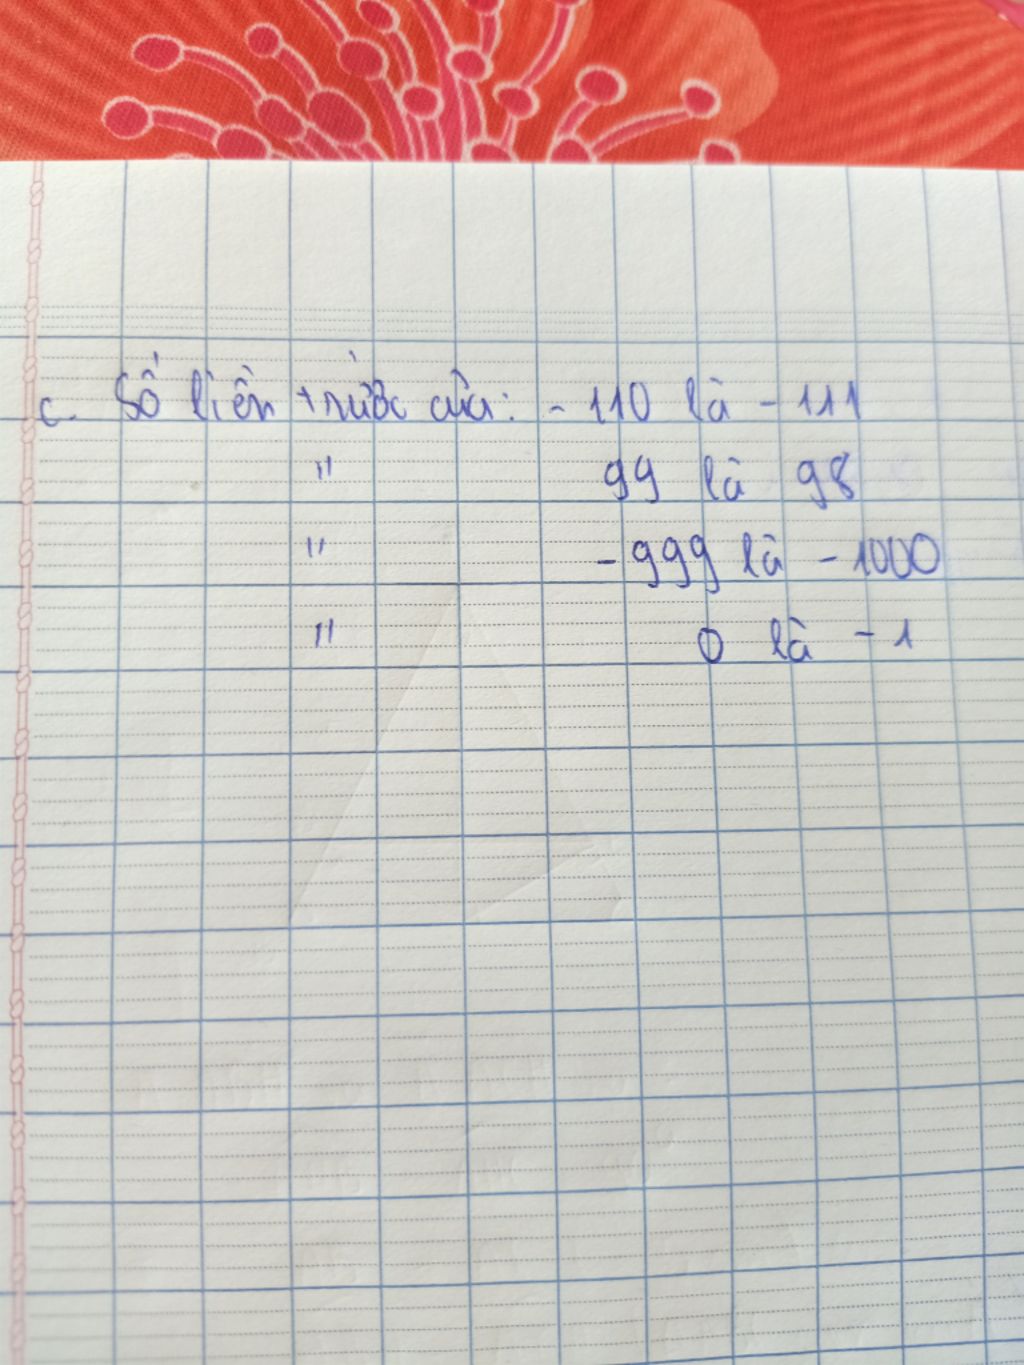 c. Số liền trước của: - 110 là - 111
" 99 là 98
" - 999 là - 1000
" 0 là - 1